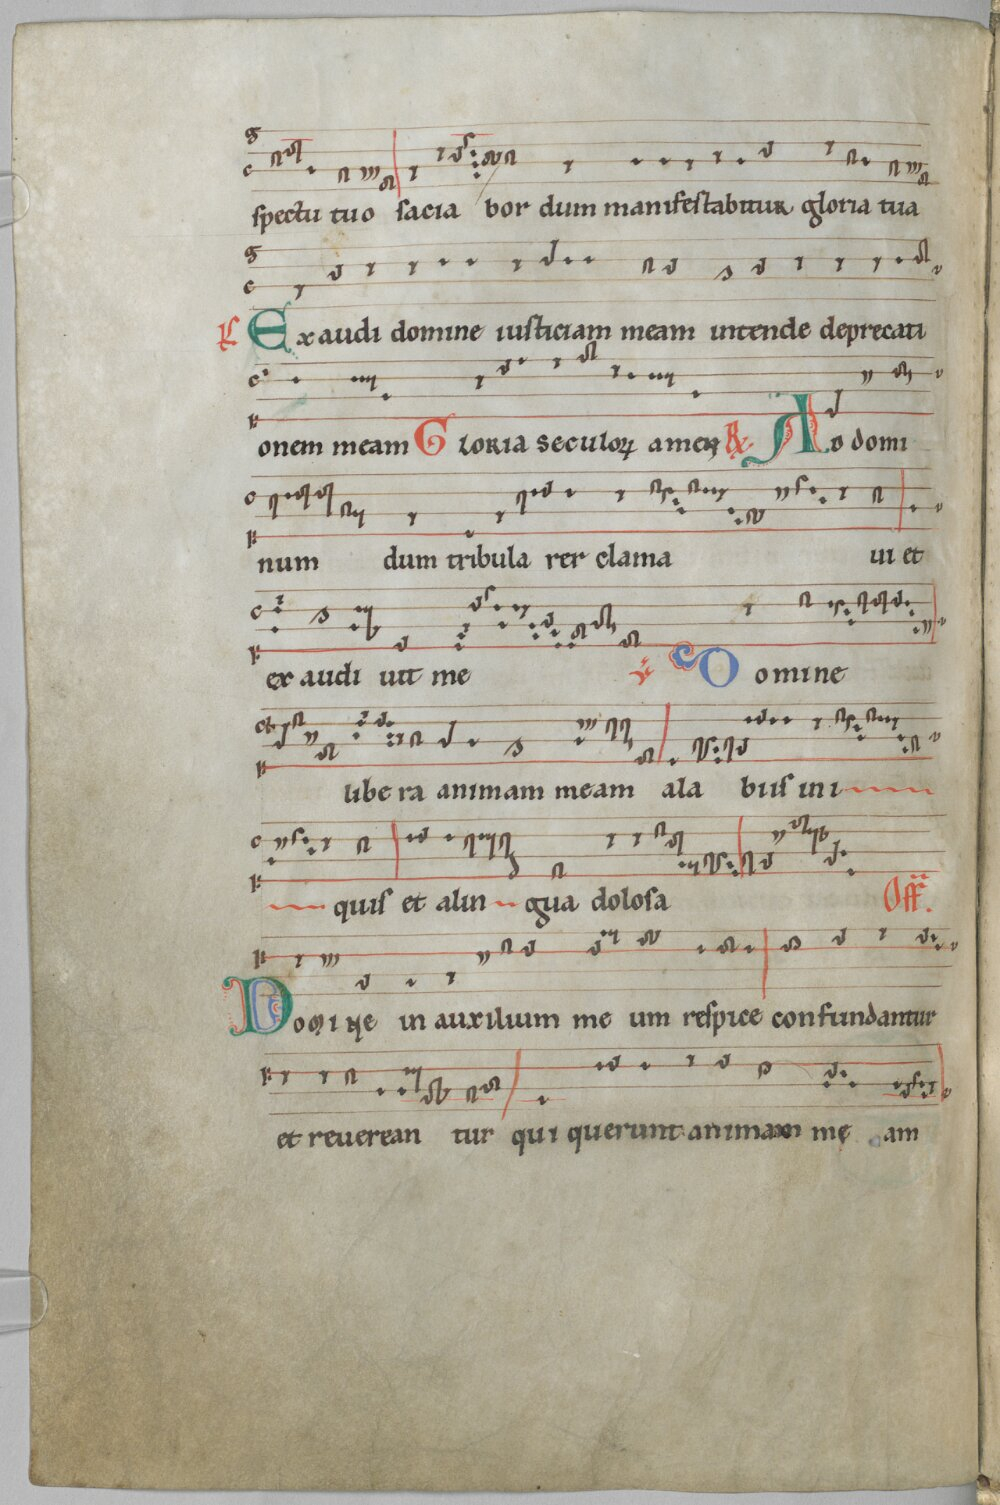 spectu tuo sacia bor dum manifestabitur gloria tua
Exaudi domine iusticiam meam intende deprecati
onem meam Gloria seculoꝝ amen ℟ Ad domi
num dum tribula rer clama ui et
ex audi uit me ℣ Domine
libe ra animam meam ala biis ini
quis et alin gua dolosa Off.
Domine in auxilium me um respice confundantur
et reuerean tur qui querunt animam me am